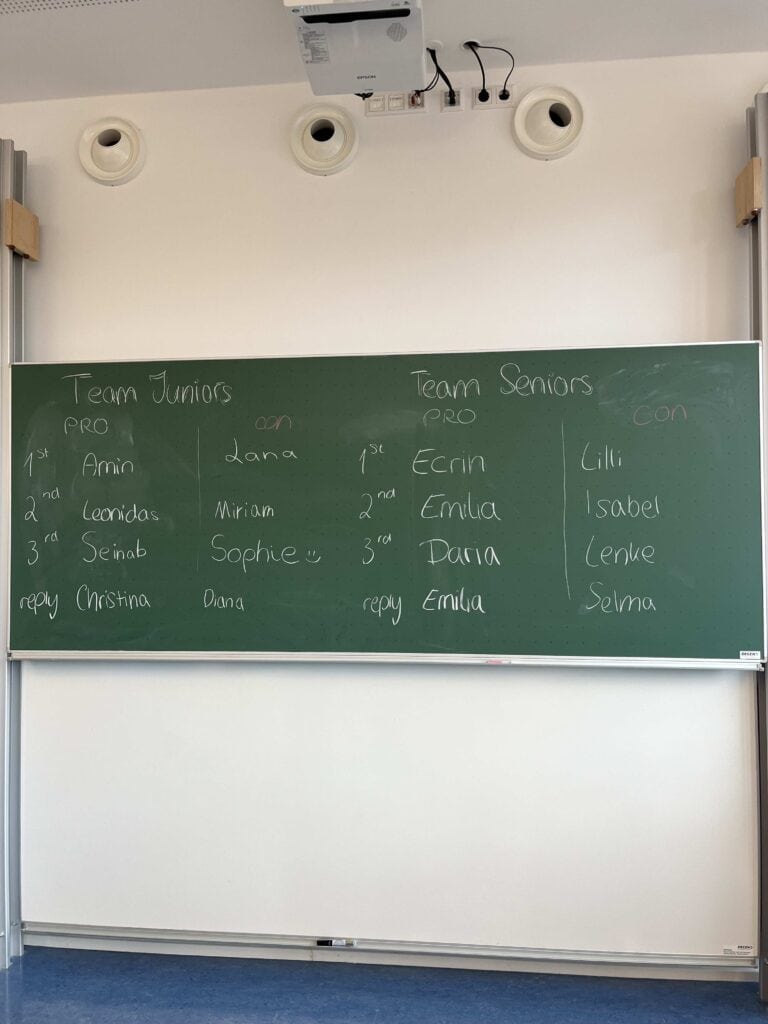 EPSON
Team Juniors Team Seniors
PRO con PRO con
1st Amin Lana 1st Ecrin Lilli
2nd Leonidas Miriam 2nd Emilia Isabel
3rd Seinab Sophie :) 3rd Daria Lenke
reply Christina Diana reply Emilia Selma